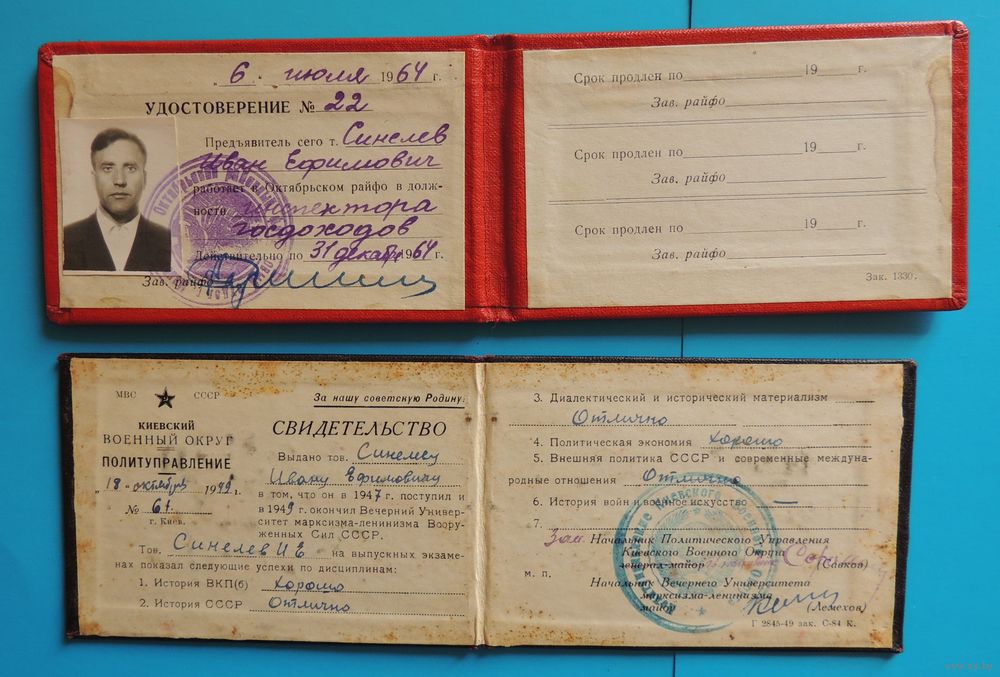 6. июля 1964 г.
УДОСТОВЕРЕНИЕ № 22
Предъявитель сего т. Синелев
Иван Ефимович
работает в Октябрьском райфо в долж-
ности инспектора
госдоходов
Действительно по 31 декабр 1964 г.
Зав. райфо
Срок продлен по 19 г.
Зав. райфо
Срок продлен по 19 г.
Зав. райфо
Срок продлен по 19 г.
Зав. райфо
Зак. 1330.
МВС СССР
КИЕВСКИЙ
ВОЕННЫЙ ОКРУГ
ПОЛИТУПРАВЛЕНИЕ
„18" октября 1949 г.
№ 61
г. Киев.
За нашу советскую Родину!
СВИДЕТЕЛЬСТВО
Выдано тов. Синелеву
Ивану Ефимовичу
в том, что он в 1947 г. поступил и
в 1949 г. окончил Вечерний Универ-
ситет марксизма-ленинизма Воору-
женных Сил СССР.
Тов. Синелев И Е на выпускных экзаме-
нах показал следующие успехи по дисциплинам:
1. История ВКП(б) хорошо
2. История СССР Отлично
3. Диалектический и исторический материализм
Отлично
4. Политическая экономия хорошо
5. Внешняя политика СССР и современные междуна-
родные отношения Отлично
6. История войн и военное искусство —
7.
Зам. Начальник Политического Управления
Киевского Военного Округа
генерал-майор (Савков)
м. п.
Начальник Вечернего Университета
марксизма-ленинизма
майор (Лемехов)
Г 2845-49 зак. С-84 К.